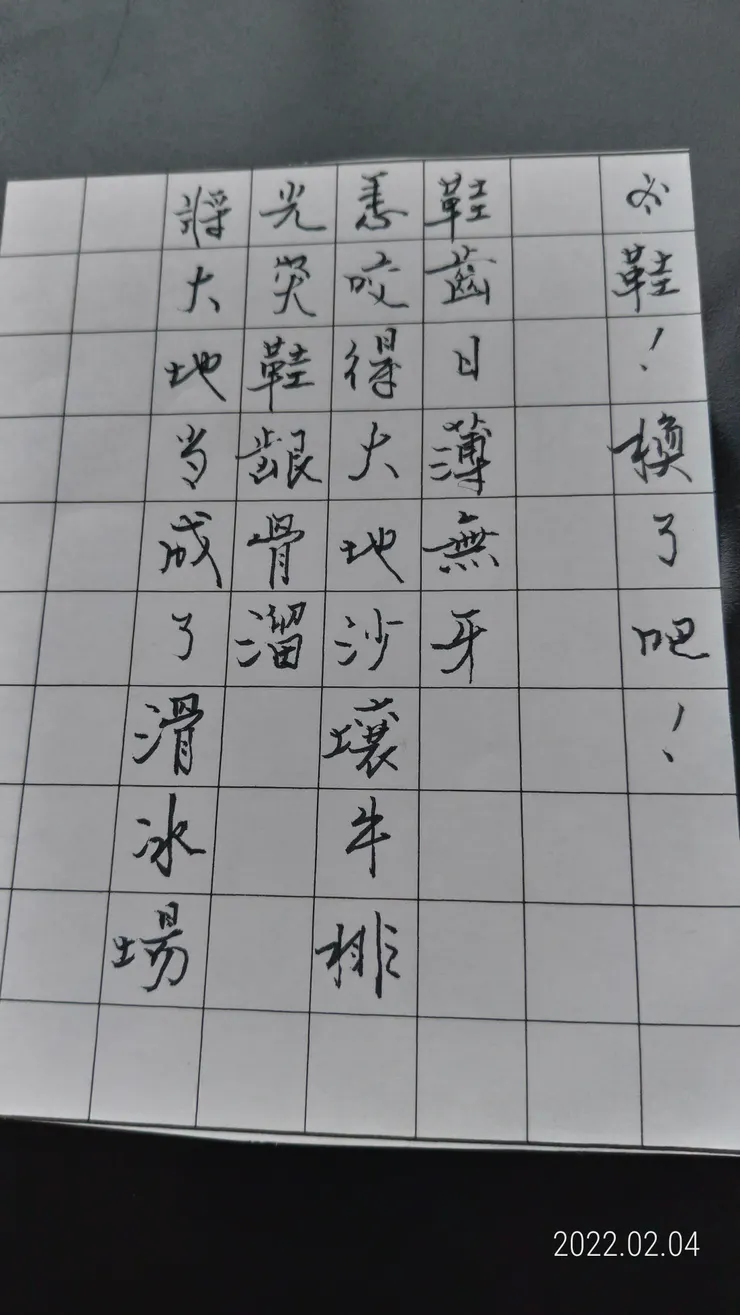 鞋！換了吧！
鞋齒日薄無牙
怎咬得大地沙壤牛排
光熒鞋齦骨溜
將大地当成了滑冰場
2022.02.04